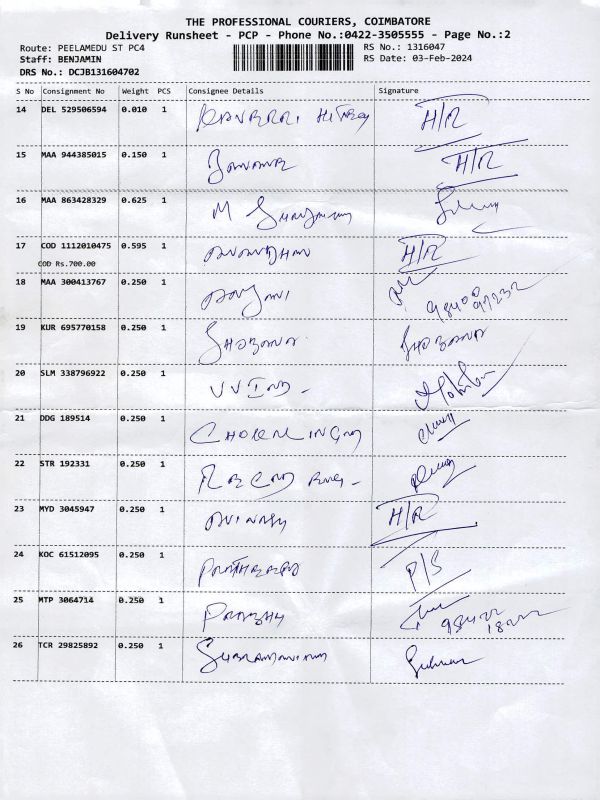 THE PROFESSIONAL COURIERS, COIMBATORE
Delivery Runsheet - PCP - Phone No.:0422-3505555 - Page No.:2
Route: PEELAMEDU ST PC4 RS No.: 1316047
Staff: BENJAMIN RS Date: 03-Feb-2024
DRS No.: DCJB131604702
S No Consignment No Weight PCS Consignee Details Signature
14 DEL 529506594 0.010 1 H/R
15 MAA 944385015 0.150 1 H/R
16 MAA 863428329 0.625 1 M
17 COD 1112010475 0.595 1 H/R
COD Rs.700.00
18 MAA 300413767 0.250 1
19 KUR 695770158 0.250 1 SHOBANA SHOBANA
20 SLM 338796922 0.250 1
21 DDG 189514 0.250 1
22 STR 192331 0.250 1
23 MYD 3045947 0.250 1 AVINASH H/R
24 KOC 61512095 0.250 1 P/S
25 MTP 3064714 0.250 1 PRABHU
26 TCR 29825892 0.250 1 SUBRAMANIAM